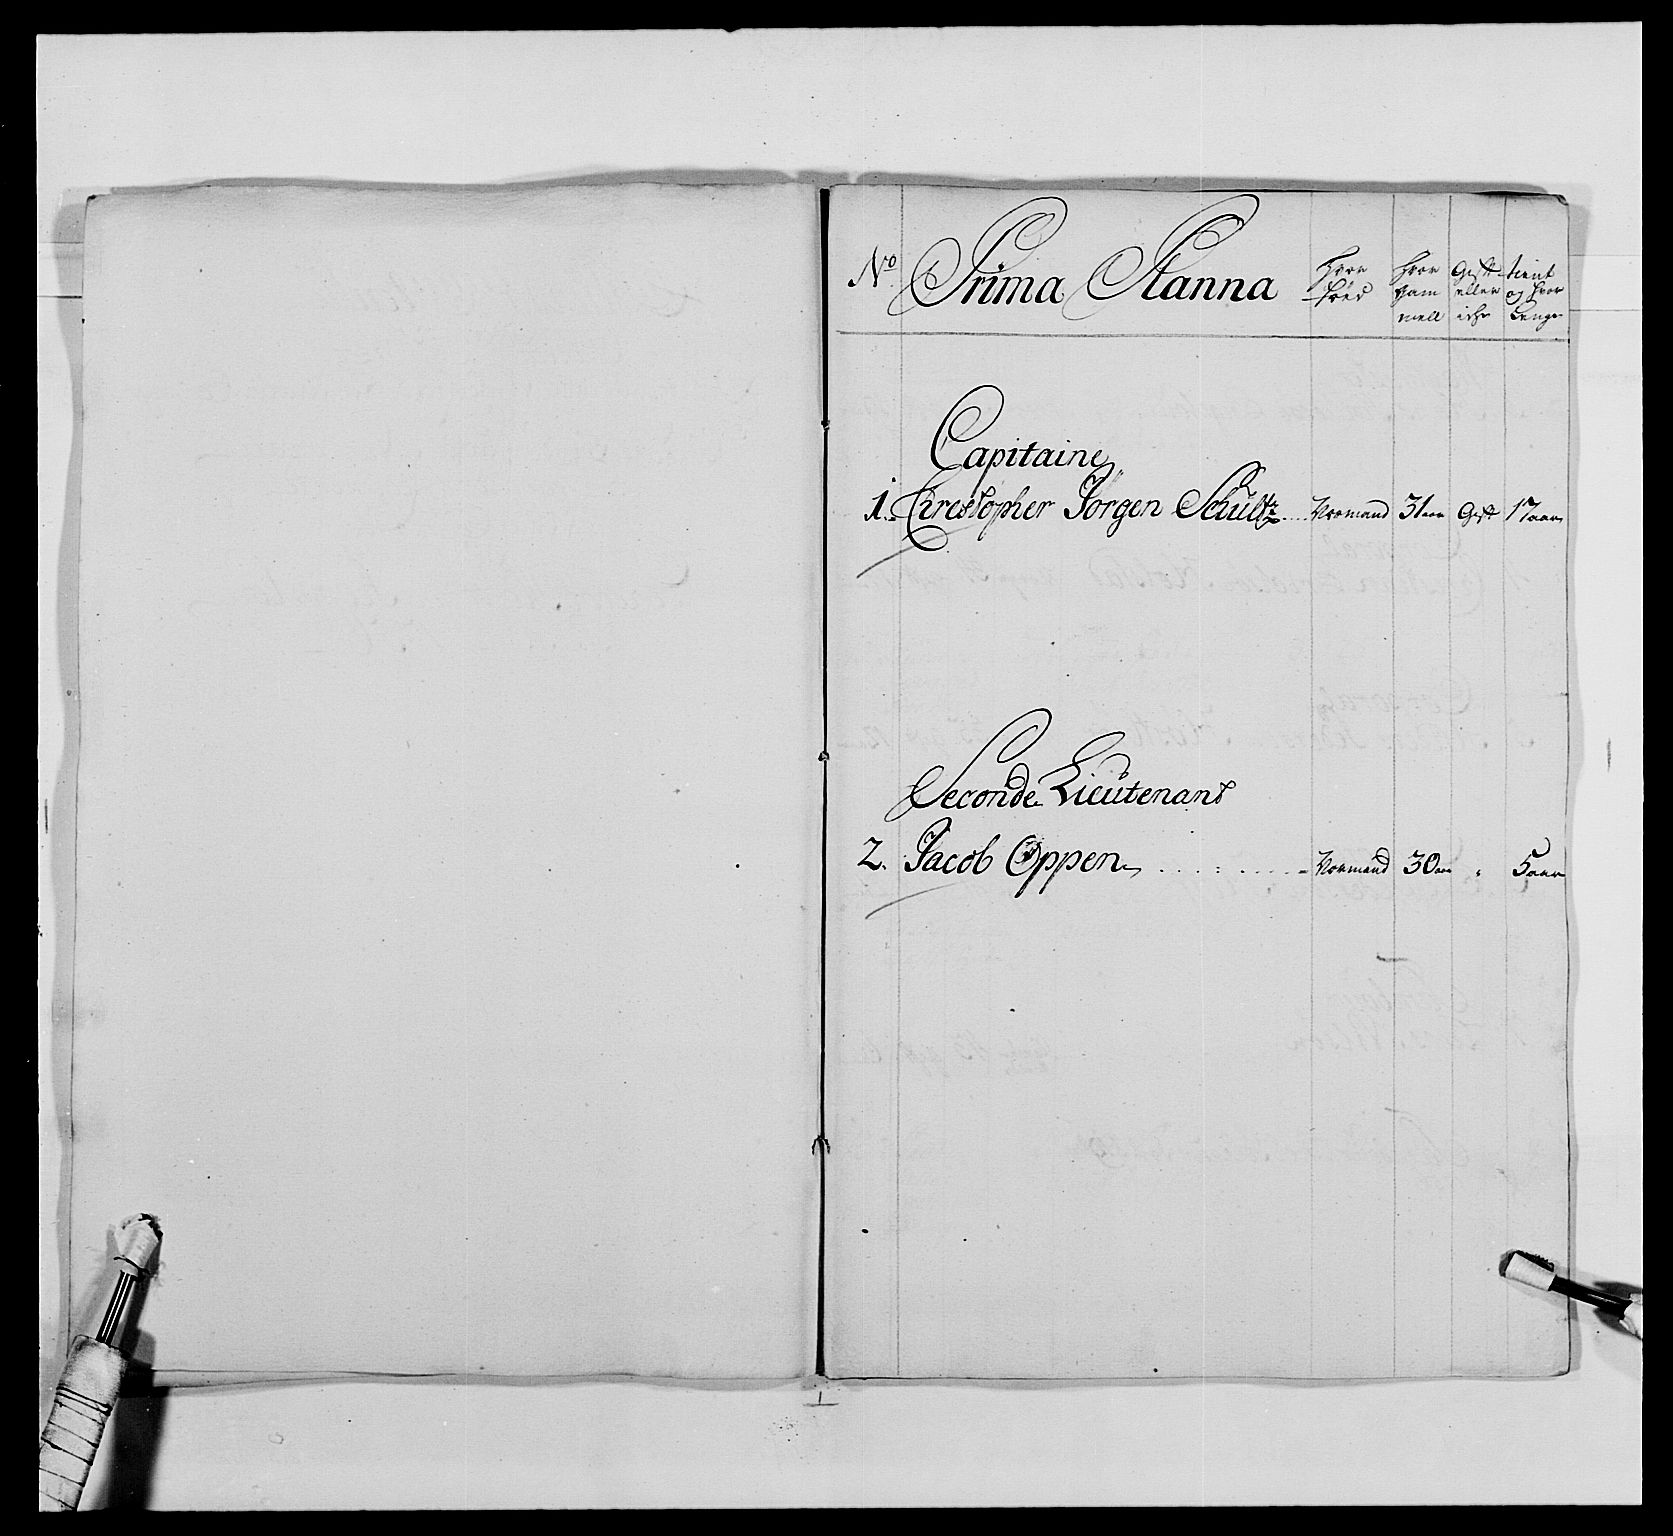 No Prima Planna Hvor føed Hvor gammell Gift eller icke tient og hvor Lenge
Capitaine
1. Christopher Jørgen Schultz Normand 31 aar Gift 17 aar
Seconde Lieutenant
2. Jacob Oppen Normand 30 aar " 5 aar